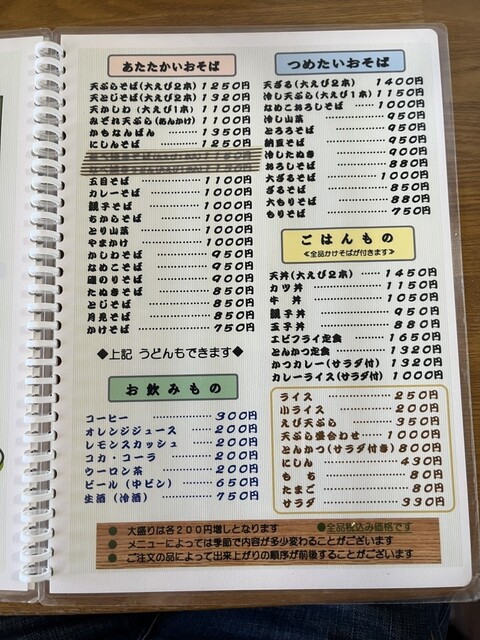 あたたかいおそば
天ぷらそば(大えび2本) 1250円
天とじそば(大えび2本) 1320円
天かしわ(大えび1本) 1100円
みぞれ天ぷら(あんかけ) 1100円
かもなんばん ………… 1350円
にしんそば ………… 1250円
五目そば ………… 1100円
カレーそば ………… 1000円
親子そば ………… 1000円
ちからそば ………… 1000円
とり山菜 ………… 1000円
やまかけ ………… 1000円
かしわそば ………… 950円
なめこそば ………… 950円
磯のりそば ………… 900円
たぬきそば ………… 850円
とじそば ………… 850円
月見そば ………… 850円
かけそば ………… 750円
◆上記 うどんもできます◆
お飲みもの
コーヒー ………… 300円
オレンジジュース ……… 200円
レモンスカッシュ ……… 200円
コカ・コーラ ………… 200円
ウーロン茶 ………… 200円
ビール(中ビン) ……… 650円
生酒(冷酒) ………… 750円
つめたいおそば
天ざる(大えび2本) 1400円
冷し天ぷら(大えび1本) 1150円
なめこおろしそば …… 1000円
冷し山菜 ………… 950円
とろろそば ………… 950円
納豆そば ………… 950円
冷したぬき ………… 900円
おろしそば ………… 880円
大ざるそば ………… 1000円
ざるそば ………… 850円
大もりそば ………… 880円
もりそば ………… 750円
ごはんもの
≪全品かけそばが付きます≫
天丼(大えび2本) … 1450円
カツ丼 ………… 1150円
牛丼 ………… 1050円
親子丼 ………… 950円
玉子丼 ………… 880円
エビフライ定食 ……… 1650円
とんかつ定食 ……… 1320円
かつカレー(サラダ付) 1320円
カレーライス(サラダ付) 1000円
ライス ………… 250円
小ライス ………… 200円
えび天ぷら ………… 350円
天ぷら盛合わせ …… 1000円
とんかつ(サラダ付き) 800円
にしん ………… 430円
もち ………… 80円
たまご ………… 80円
サラダ ………… 330円
● 大盛りは各200円増しとなります ●全品税込み価格です
● メニューによっては季節で内容が多少変わることがございます
● ご注文の品によって出来上がりの順序が前後することがございます